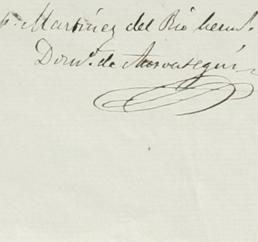 p. Martinez del Rio herms.
Domo. de Ansoategui